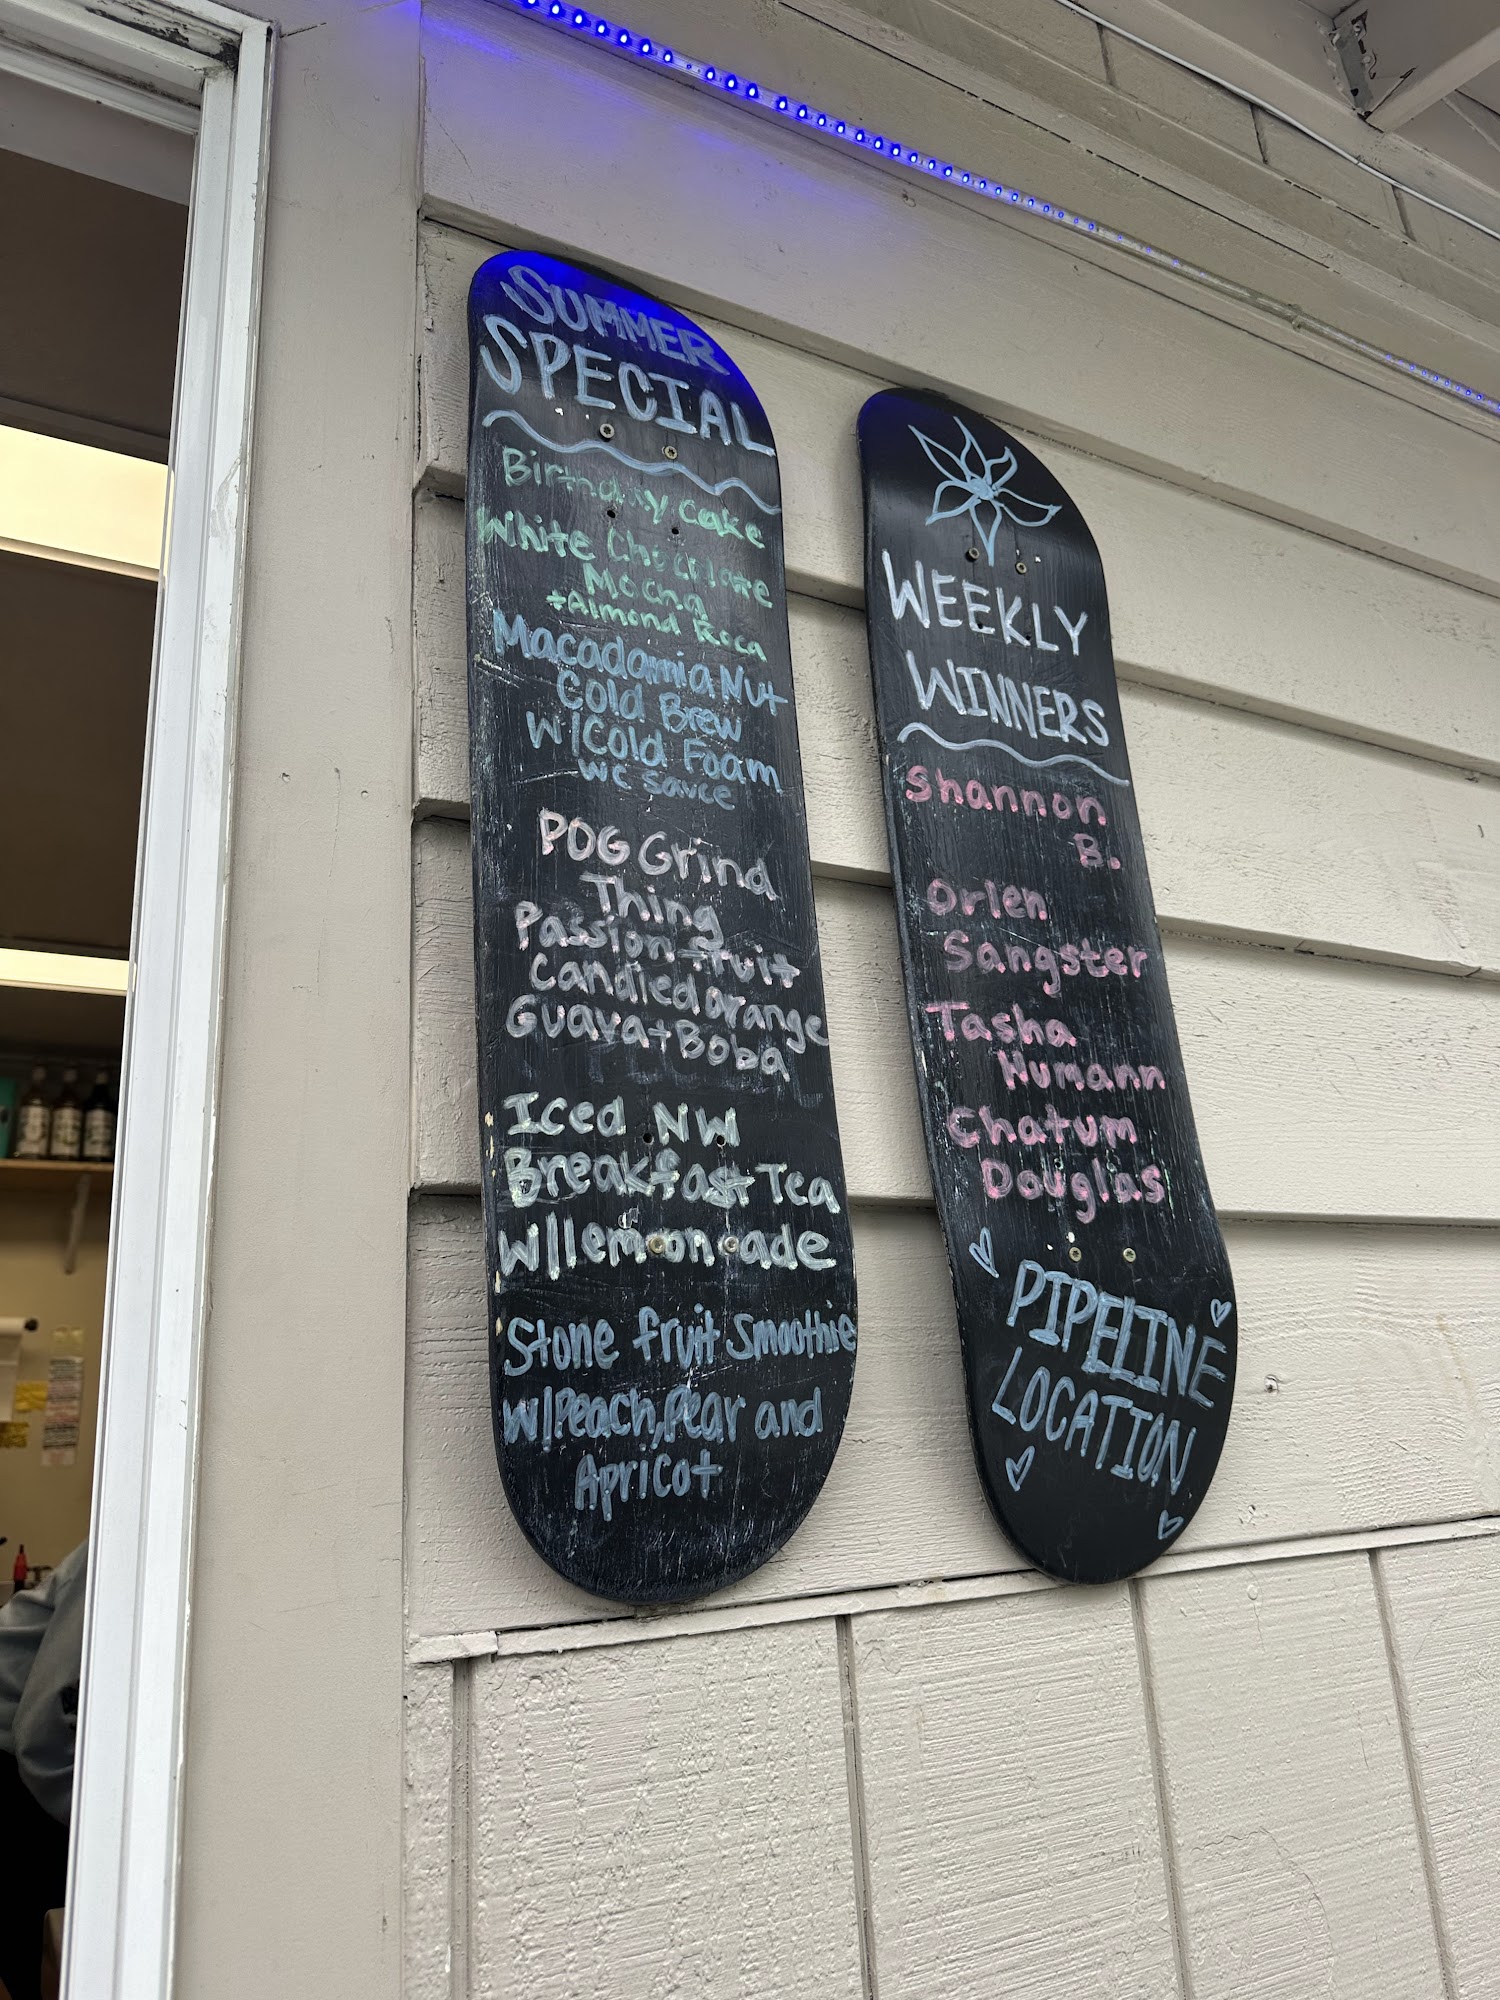 SUMMER
SPECIAL
Birthday Cake
White Chocolate
Mocha
+Almond Roca
Macadamia Nut
Cold Brew
W/Cold Foam
WC Sauce
POG Grind
Thing
Passion fruit
Candied orange
Guava+Boba
Iced NW
Breakfast Tea
W/lemonade
Stone fruit Smoothie
W/Peach, Pear and
Apricot
WEEKLY
WINNERS
Shannon
B.
Orlen
Sangster
Tasha
Numann
Chatum
Douglas
PIPELINE
LOCATION